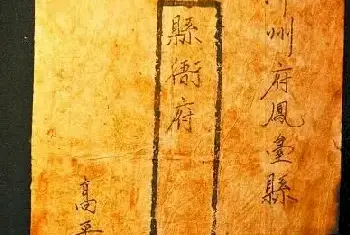 州府鳳臺縣
縣衙府
高